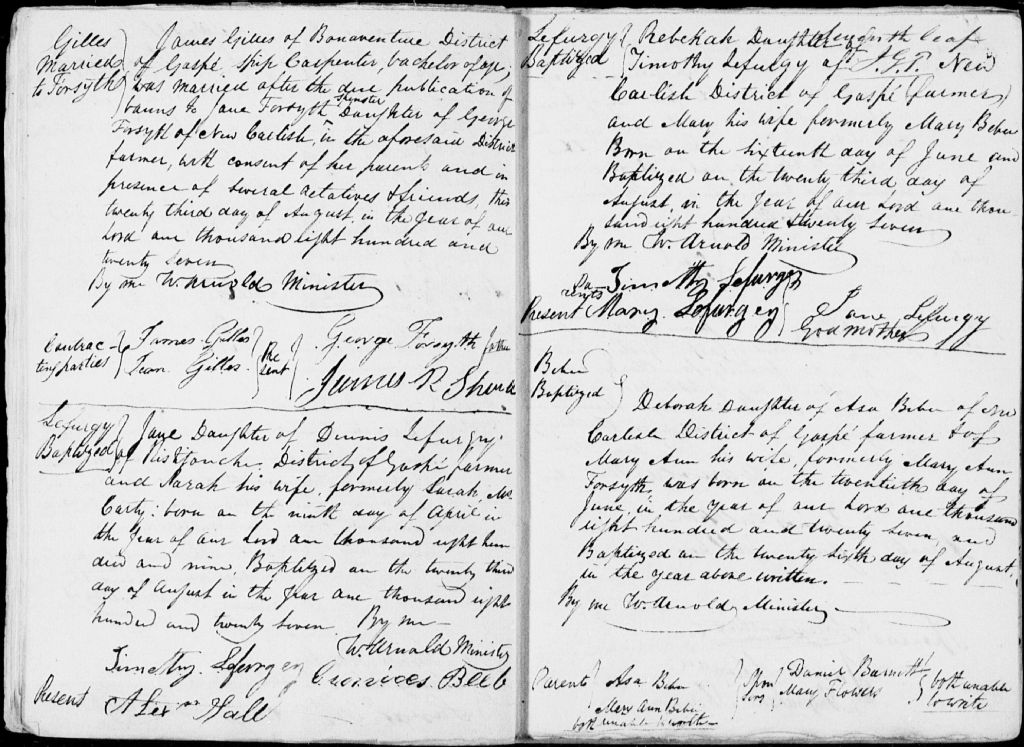 Gilles
Married
to Forsyth
James Gilles of Bonaventure District
of Gaspé Ship Carpenter, bachelor of age,
was married after the due publication of
banns to Jane Forsyth Spinster Daughter of George
Forsyth of New Carlisle, in the aforesaid District
farmer, with consent of her parents and in
presence of several relatives & friends, this
twenty third day of August, in the year of our
Lord one thousand eight hundred and
twenty seven
By me W. Arnold Minister
Contrac-
ting parties
James Gilles
Jean Gilles
Pre
sent
George Forsyth father
James R
Lefurgy
Baptized
Jane Daughter of Dennis Lefurgy
of Ristigouche, District of Gaspé farmer
and Sarah his wife, formerly Sarah Mc
Carty: born on the ninth day of April in
the year of our Lord one thousand eight hun
dred and nine, Baptized on the twenty third
day of August in the year one thousand eight
hundred and twenty seven By me
W. Arnold Minister
Timothy Lefurgey
Beeb
Present
Alexr Hall
Lefurgy
Baptized
leaf
Rebekah Daughter of
Timothy Lefurgy of J.G.T. New
Carlisle District of Gaspé (farmer)
and Mary his wife formerly Mary Beber
Born on the sixteenth day of June and
Baptized on the twenty third day of
August, in the Year of our Lord one thou
sand eight hundred & twenty seven
By me W. Arnold Minister
Pa-
rents
Present
Timothy Lefurgy
Mary Lefurgey
Jane Lefurgy
Godmother
Beber
Baptized
Deborah Daughter of Asa Beber of New
Carlisle District of Gaspé farmer & of
Mary Ann his wife, formerly Mary Ann
Forsyth, was born on the twentieth day of
June, in the year of our Lord one thousand
eight hundred and twenty seven, and
Baptized on the twenty sixth day of August,
in the year above written.
By me W. Arnold Minister
Parents
Asa Beber
Mary Ann Beber
both unable to write
Spon
sors
Daniel Barnett
Mary Flowers
both unable
to write